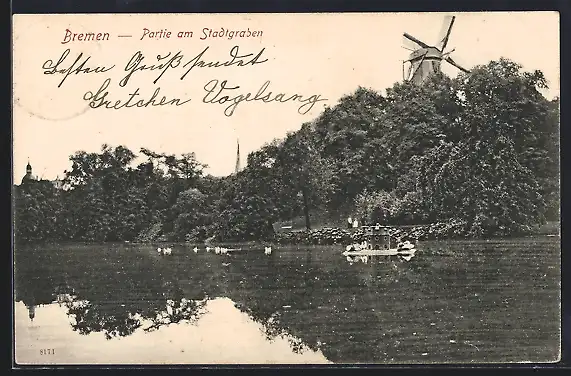 Bremen — Partie am Stadtgraben
Besten Gruß sendet
Gretchen Vogelsang
8171